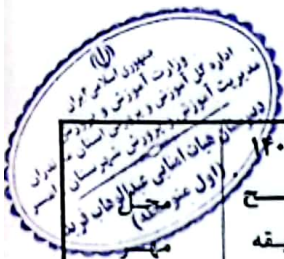 جمهوری اسلامی ایران
وزارت آموزش و پرورش
اداره کل آموزش و پرورش استان مازندران
مدیریت آموزش و پرورش شهرستان
دبیرستان هیأت امنایی عبدالوهاب فرید
(اول متوسطه)
۱۴۰
ح
محل
یقه
مهر